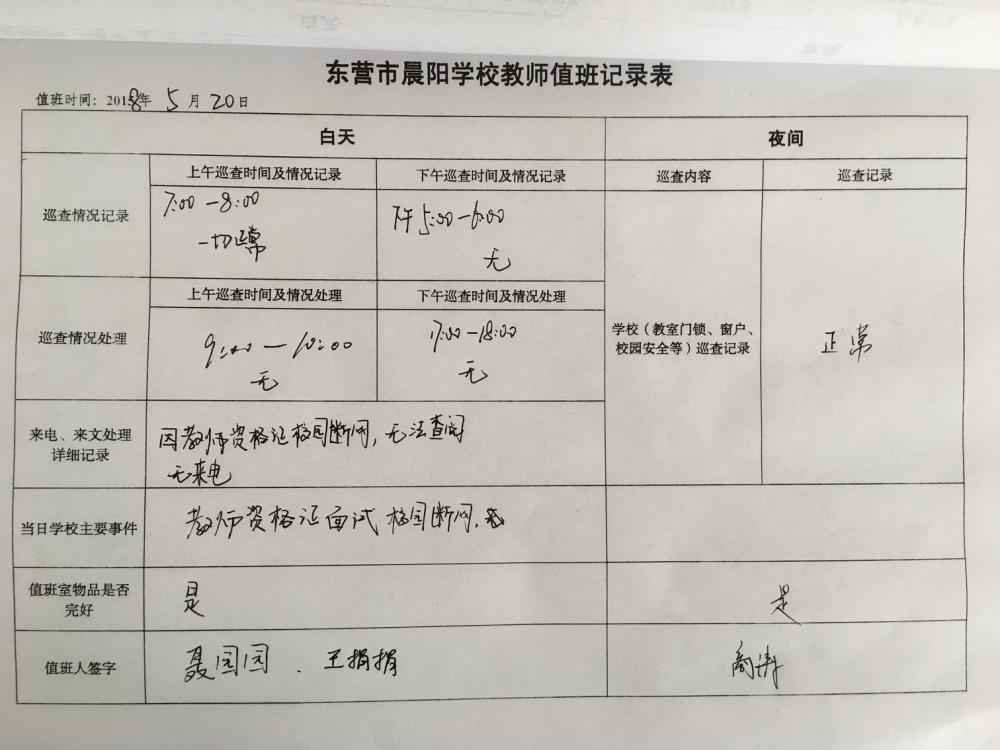 东营市晨阳学校教师值班记录表
值班时间：2018年 5月20日
白天
夜间
上午巡查时间及情况记录
下午巡查时间及情况记录
巡查内容
巡查记录
巡查情况记录
7:00－8:00
一切正常
下午5:00－6:00
无
上午巡查时间及情况处理
下午巡查时间及情况处理
巡查情况处理
9:00－10:00
无
17:00－18:00
无
学校（教室门锁、窗户、
校园安全等）巡查记录
正常
来电、来文处理
详细记录
因教师资格证校园断网，无法查阅
无来电
当日学校主要事件
教师资格证面试校园断网.
值班室物品是否
完好
是
是
值班人签字
聂园园 . 王捐捐
商涛